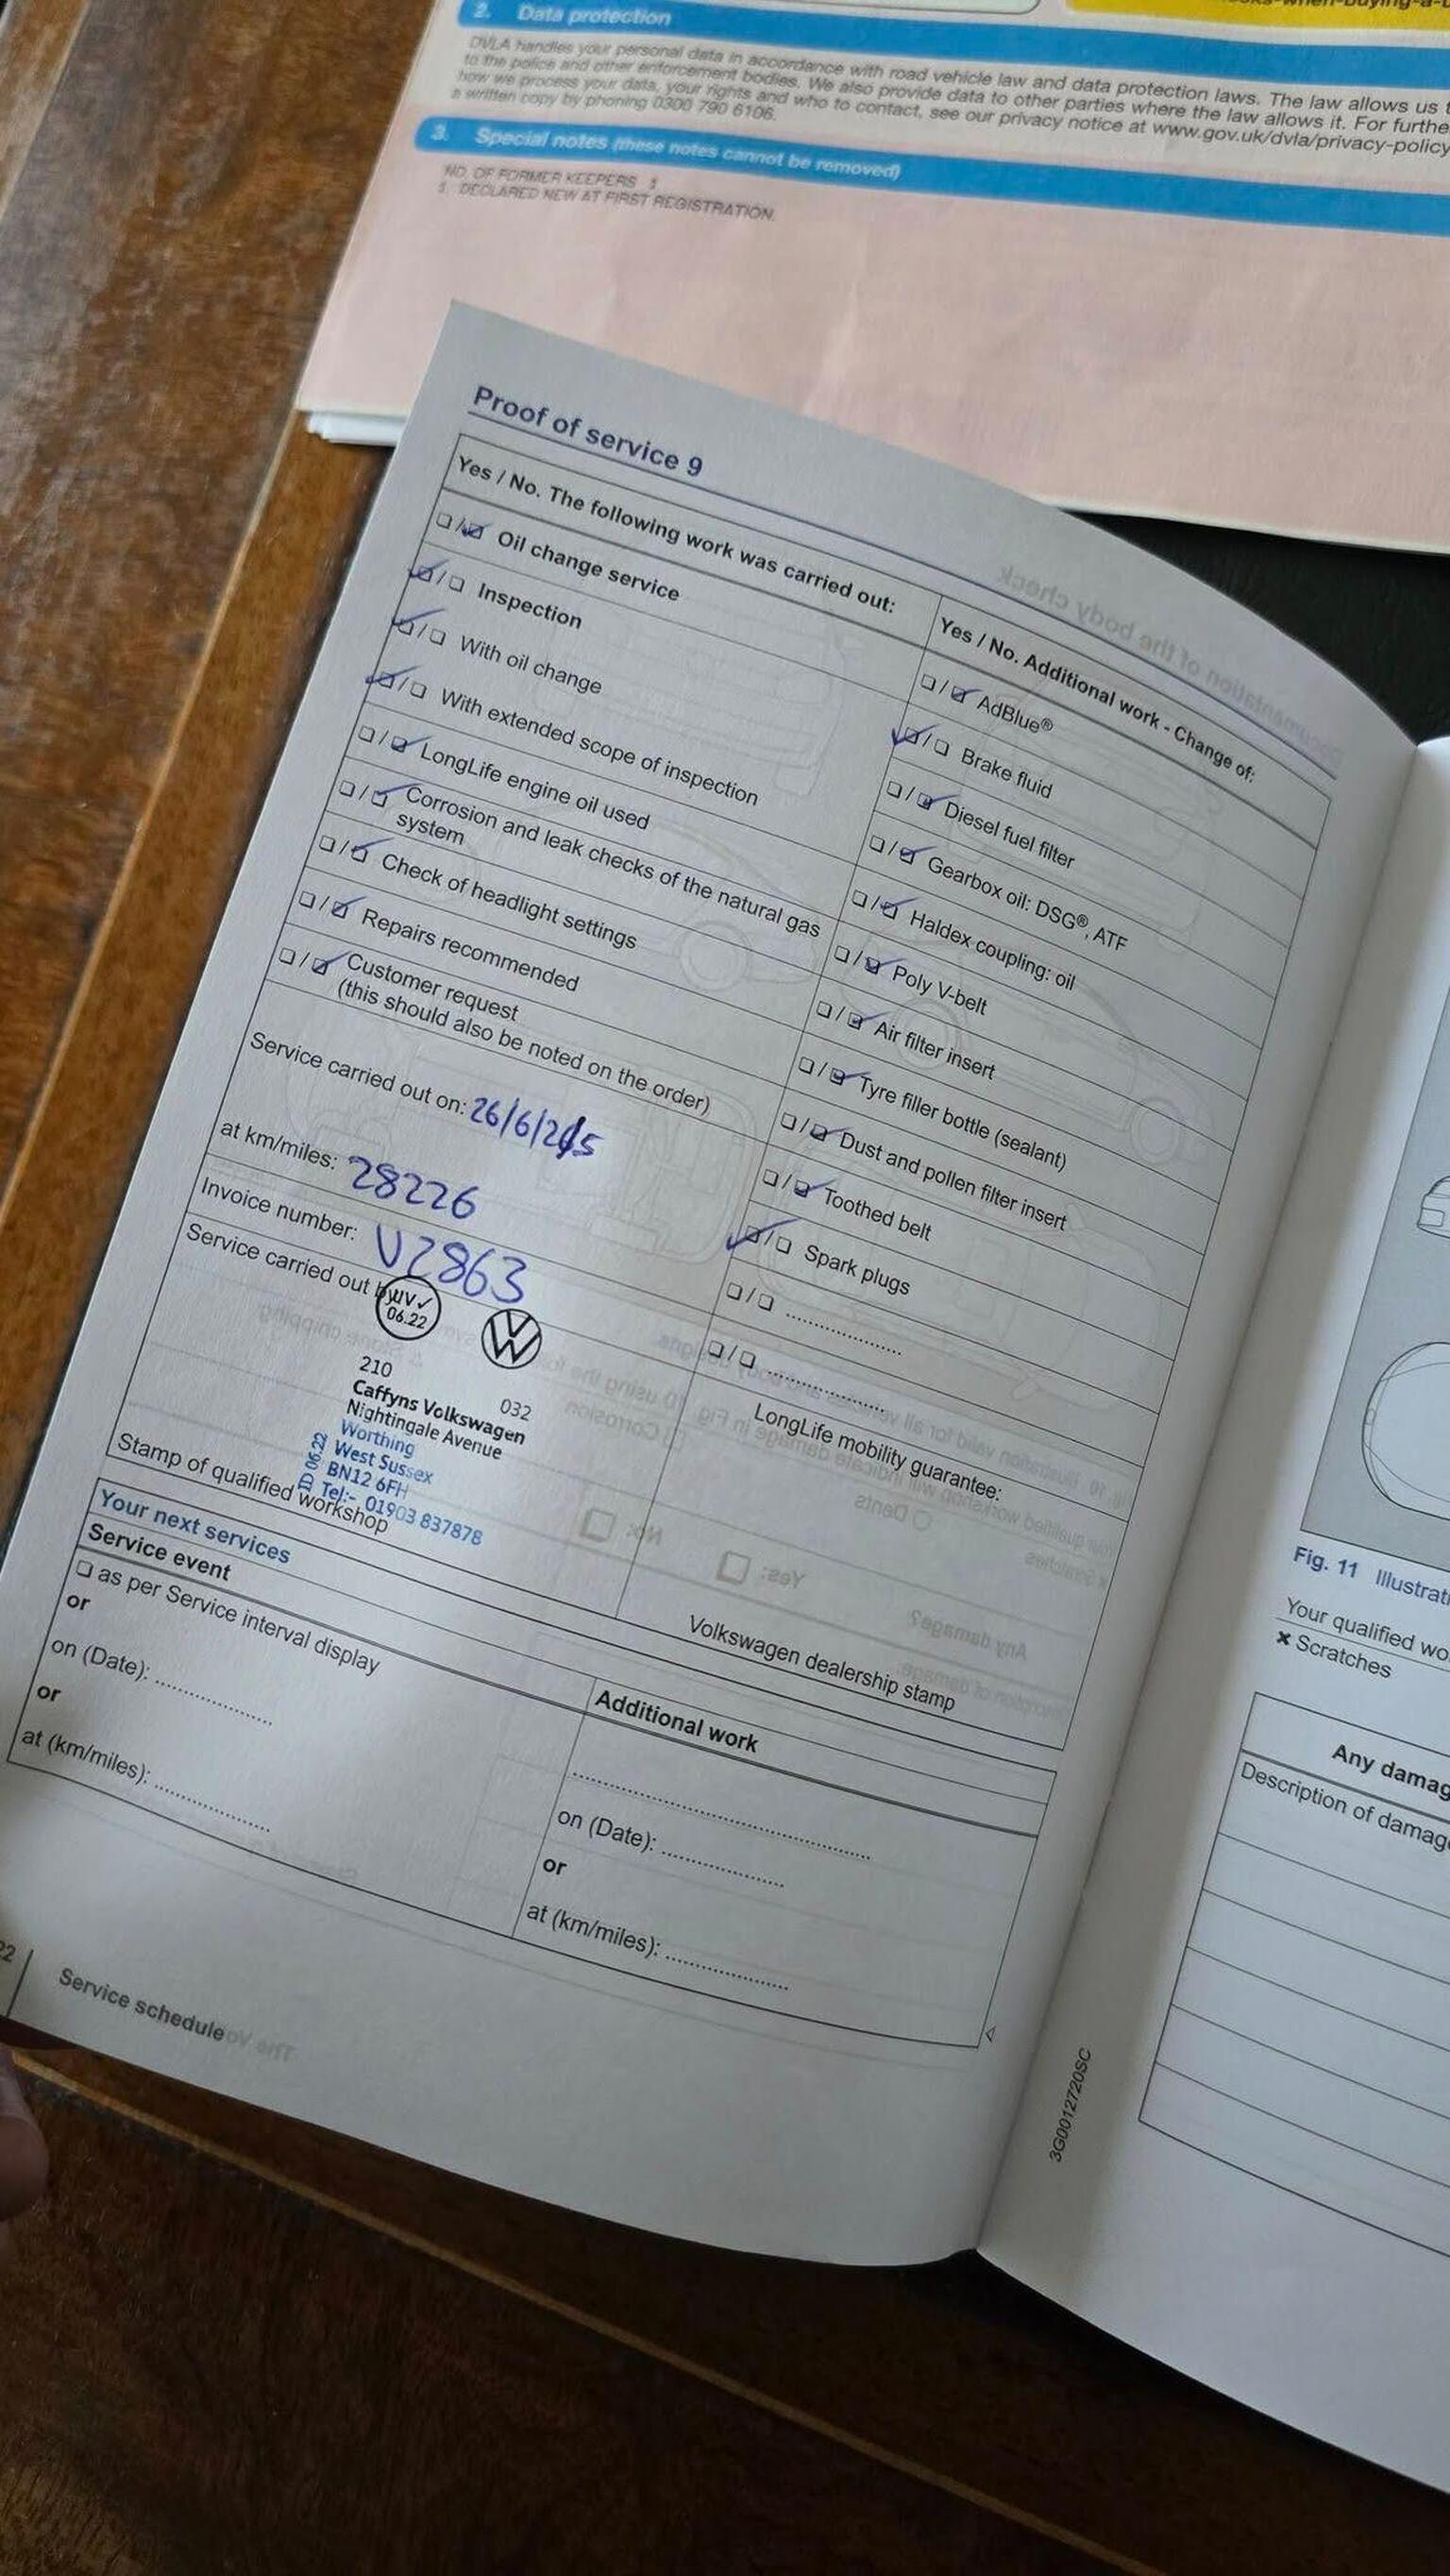 2. Data protection
DVLA handles your personal data in accordance with road vehicle law and data protection laws. The law allows us
to the police and other enforcement bodies. We also provide data to other parties where the law allows it. For furthe
how we process your data, your rights and who to contact, see our privacy notice at www.gov.uk/dvla/privacy-policy
a written copy by phoning 0300 790 6106.
3. Special notes (these notes cannot be removed)
NO. OF FORMER KEEPERS 1
1. DECLARED NEW AT FIRST REGISTRATION.
Proof of service 9
Yes / No. The following work was carried out:
❑/❑ Oil change service
❑/❑ Inspection
❑/❑ With oil change
❑/❑ With extended scope of inspection
❑/❑ LongLife engine oil used
❑/❑ Corrosion and leak checks of the natural gas
system
❑/❑ Check of headlight settings
❑/❑ Repairs recommended
❑/❑ Customer request
(this should also be noted on the order)
Service carried out on: 26/6/25
at km/miles: 28226
Invoice number: V2863
Service carried out by:
UV✓
06.22
210
032
Caffyns Volkswagen
Nightingale Avenue
Worthing
West Sussex
BN12 6FH
Tel:- 01903 837878
ID 06.22
Stamp of qualified workshop
Yes / No. Additional work - Change of:
❑/❑ AdBlue®
❑/❑ Brake fluid
❑/❑ Diesel fuel filter
❑/❑ Gearbox oil: DSG®, ATF
❑/❑ Haldex coupling: oil
❑/❑ Poly V-belt
❑/❑ Air filter insert
❑/❑ Tyre filler bottle (sealant)
❑/❑ Dust and pollen filter insert
❑/❑ Toothed belt
❑/❑ Spark plugs
❑/❑ ..................
❑/❑ ..................
LongLife mobility guarantee:
Volkswagen dealership stamp
Your next services
Service event
❑ as per Service interval display
or
on (Date): ..................
or
at (km/miles): ..................
Additional work
..............................................
on (Date): ...................
or
at (km/miles): ...................
22
Service schedule
3G0012720SC
Fig. 11 Illustrati
Your qualified wo
✗ Scratches
Any damag
Description of damag